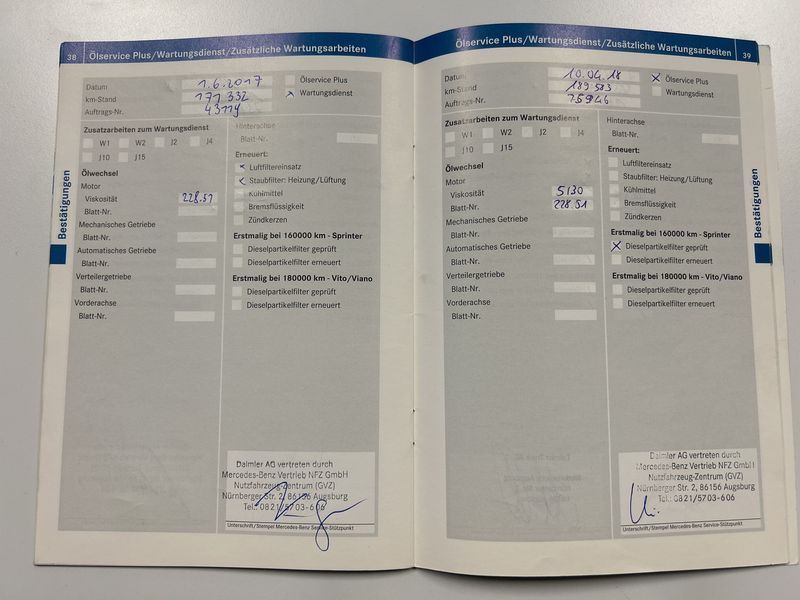 38 Ölservice Plus/Wartungsdienst/Zusätzliche Wartungsarbeiten
Datum 1.6.2017 Ölservice Plus
km-Stand 171 332 x Wartungsdienst
Auftrags-Nr. 43119
Zusatzarbeiten zum Wartungsdienst
W1 W2 J2 J4
J10 J15
Ölwechsel
Motor
Viskosität 228.51
Blatt-Nr.
Mechanisches Getriebe
Blatt-Nr.
Automatisches Getriebe
Blatt-Nr.
Verteilergetriebe
Blatt-Nr.
Vorderachse
Blatt-Nr.
Hinterachse
Blatt-Nr.
Erneuert:
x Luftfiltereinsatz
x Staubfilter: Heizung/Lüftung
Kühlmittel
Bremsflüssigkeit
Zündkerzen
Erstmalig bei 160000 km - Sprinter
Dieselpartikelfilter geprüft
Dieselpartikelfilter erneuert
Erstmalig bei 180000 km - Vito/Viano
Dieselpartikelfilter geprüft
Dieselpartikelfilter erneuert
Daimler AG vertreten durch
Mercedes-Benz Vertrieb NFZ GmbH
Nutzfahrzeug-Zentrum (GVZ)
Nürnberger Str. 2, 86156 Augsburg
Tel.: 0821/5703-606
Unterschrift/Stempel Mercedes-Benz Service-Stützpunkt
Bestätigungen
Ölservice Plus/Wartungsdienst/Zusätzliche Wartungsarbeiten 39
Datum 10.04.18 x Ölservice Plus
km-Stand 189 583 Wartungsdienst
Auftrags-Nr. 75946
Zusatzarbeiten zum Wartungsdienst
W1 W2 J2 J4
J10 J15
Ölwechsel
Motor
Viskosität 5W30
Blatt-Nr. 228.51
Mechanisches Getriebe
Blatt-Nr.
Automatisches Getriebe
Blatt-Nr.
Verteilergetriebe
Blatt-Nr.
Vorderachse
Blatt-Nr.
Hinterachse
Blatt-Nr.
Erneuert:
Luftfiltereinsatz
Staubfilter: Heizung/Lüftung
Kühlmittel
Bremsflüssigkeit
Zündkerzen
Erstmalig bei 160000 km - Sprinter
x Dieselpartikelfilter geprüft
Dieselpartikelfilter erneuert
Erstmalig bei 180000 km - Vito/Viano
Dieselpartikelfilter geprüft
Dieselpartikelfilter erneuert
Daimler AG vertreten durch
Mercedes-Benz Vertrieb NFZ GmbH
Nutzfahrzeug-Zentrum (GVZ)
Nürnberger Str. 2, 86156 Augsburg
Tel.: 0821/5703-606
Unterschrift/Stempel Mercedes-Benz Service-Stützpunkt
Bestätigungen